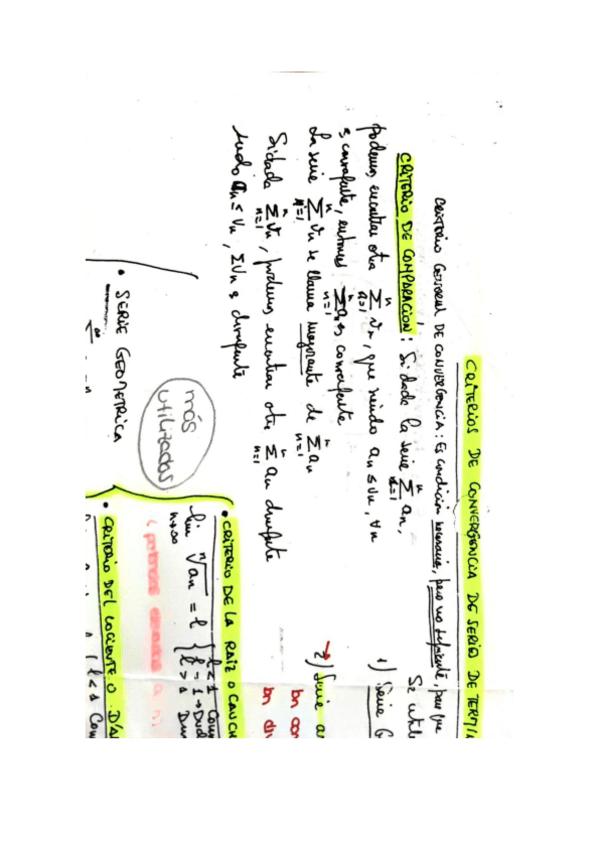 CRITERIOS DE CONVERGENCIA DE SERIES DE TERMI
CRITERIO GENERAL DE CONVERGENCIA: Es condición necesaria, pero no suficiente, para que
CRITERIO DE COMPARACION: Si dada la serie Σ an,
n=1
podemos encontrar otra Σ Vn, que siendo an ≤ Vn, ∀n
n=1
es convergente, entonces Σ an es convergente
n=1
La serie Σ Vn se llama mayorante de Σ an
n=1 n=1
Si dada Σ Vn, podemos encontrar otra Σ an divergente
n=1 n=1
an ≤ Vn, ΣVn es divergente
Se utili
1) Serie G
2) Serie a
bn con
bn di
más
utilizados
• SERIE GEOMETRICA
• CRITERIO DE LA RAIZ O CAUCH
lim ⁿ√an = l { l < 1 Conv
n→∞ l = 1 → Dud
l > 1 Div
• CRITERIO DEL COCIENTE O D'A
l < 1 Con